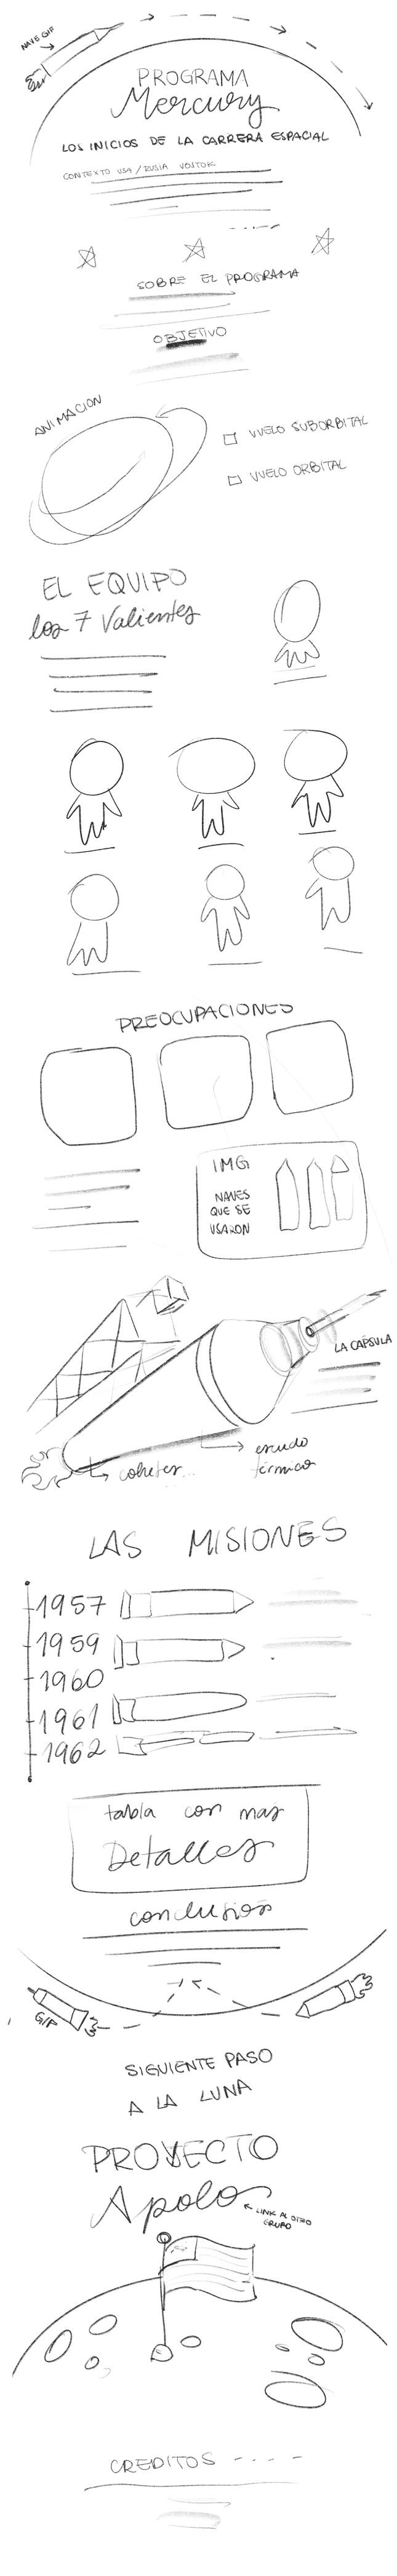 NAVE GIF
PROGRAMA
Mercury
LOS INICIOS DE LA CARRERA ESPACIAL
CONTEXTO USA / RUSIA VOSTOK
SOBRE EL PROGRAMA
OBJETIVO
ANIMACION
VUELO SUBORBITAL
VUELO ORBITAL
EL EQUIPO
los 7 Valientes
PREOCUPACIONES
IMG
NAVES
QUE SE
USARON
LA CAPSULA
cohetes
escudo
térmico
LAS MISIONES
1957
1959
1960
1961
1962
tabla con mas
Detalles
conclusion
GIF
SIGUIENTE PASO
A LA LUNA
PROYECTO
Apolo
LINK AL OTRO
GRUPO
CREDITOS